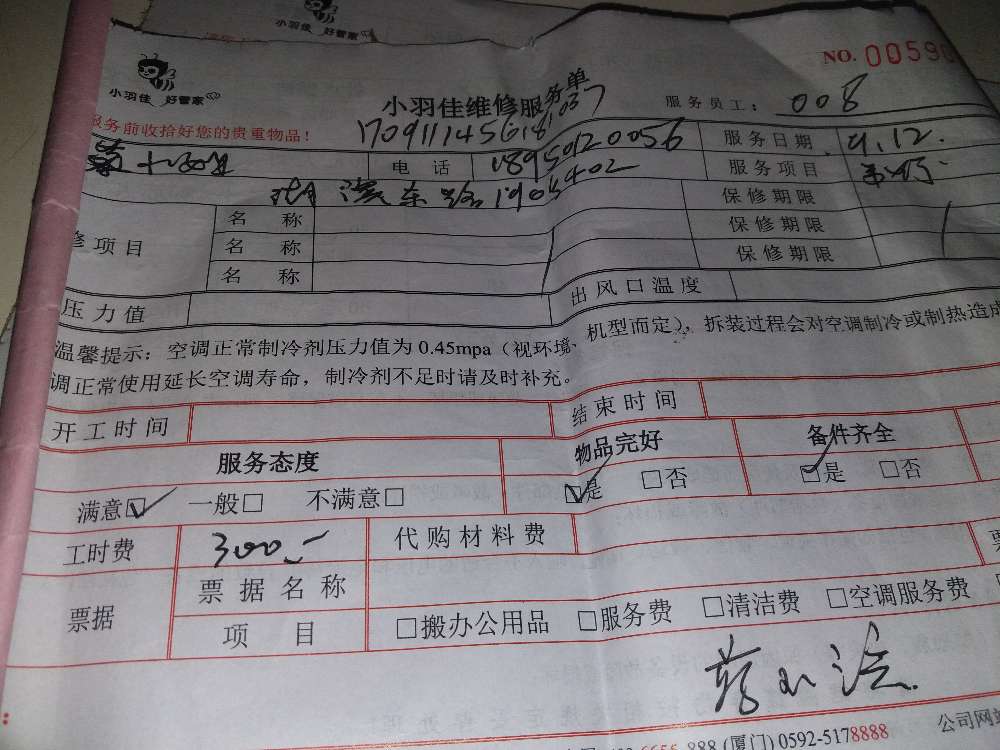 小羽佳 好管家
NO. 00590
小羽佳 好管家
小羽佳维修服务单
服务员工： 008
服务前收拾好您的贵重物品！
电 话 18950120056 服务日期 9.12.
服务项目
保修期限
修项目 名 称 保修期限
名 称 保修期限
名 称
压力值 出风口温度
温馨提示：空调正常制冷剂压力值为 0.45mpa（视环境、机型而定），拆装过程会对空调制冷或制热造成
调正常使用延长空调寿命，制冷剂不足时请及时补充。
开工时间 结束时间
服务态度 物品完好 备件齐全
满意☑ 一般□ 不满意□ ☑是 □否 ☑是 □否
工时费 300.- 代购材料费
票据 票据名称
项 目 □搬办公用品 □服务费 □清洁费 □空调服务费
888 (厦门) 0592-5178888 公司网站